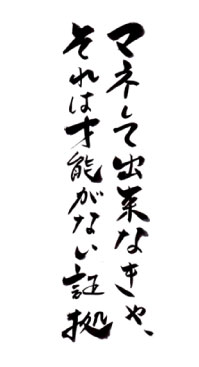 マネして出来なきゃ、
それは才能がない証拠